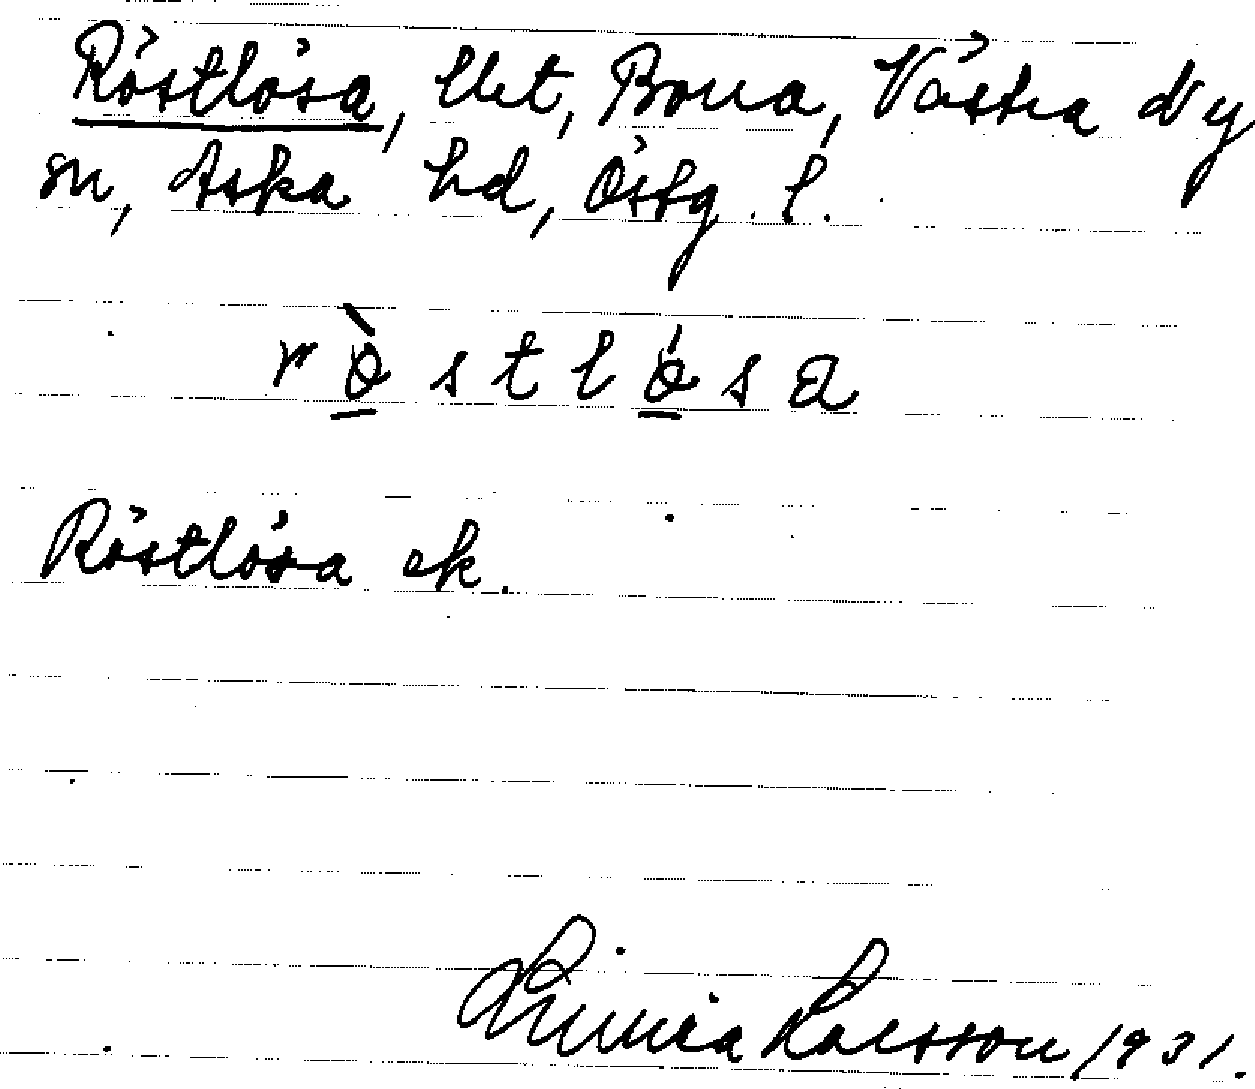 Röstlösa, lht, Bona, Västra Ny
sn, Aska hd, Östg. l.
r ö̀ s t l ö́ s a
Röstlösa ek.
Linnéa Larsson 1931.